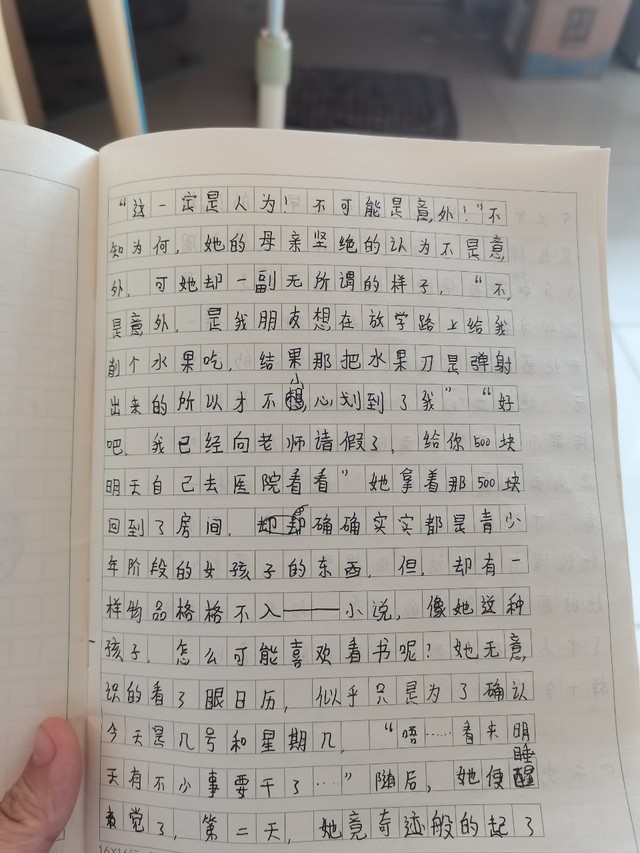 “这一定是人为！不可能是意外！”不
知为何，她的母亲坚绝的认为不是意
外，可她却一副无所谓的样子，“不，
是意外，是我朋友想在放学路上给我
削个水果吃，结果那把水果刀是弹射
出来的所以才不小心划到了我”“好
吧，我已经向老师请假了，给你500块
明天自己去医院看看”她拿着那500块
回到了房间，却确确实实都是青少
年阶段的女孩子的东西，但，却有一
样物品格格不入——小说，像她这种
孩子，怎么可能喜欢看书呢？她无意
识的看了眼日历，似乎只是为了确认
今天是几号和星期几，“唔……看来明
天有不小事要干了……”随后，她便睡
觉了，第二天，她竟奇迹般的起了